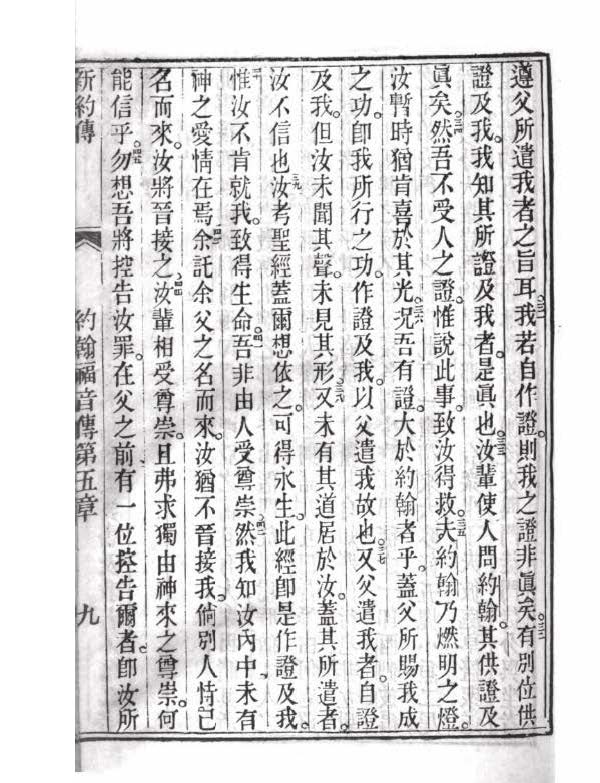 遵父所遣我者之旨耳。三一我若自作證。則我之證非眞矣。三二有別位供
證及我。我知其所證及我者。是眞也。三三汝輩使人問約翰。其供證及
眞矣。三四然吾不受人之證。惟說此事。致汝得救。三五夫約翰乃燃明之燈。
汝暫時猶肯喜於其光。三六况吾有證。大於約翰者乎。蓋父所賜我成
之功。卽我所行之功。作證及我。以父遣我故也。三七又父遣我者。自證
及我。但汝未聞其聲。未見其形。三八又未有其道居於汝。蓋其所遣者。
汝不信也。三九汝考聖經。蓋爾想依之。可得永生。此經卽是作證及我。
四十惟汝不肯就我。致得生命。四一吾非由人受尊崇。四二然我知汝內中。未有
神之愛情在焉。四三余託余父之名而來。汝猶不晉接我。倘別人情已
名而來。汝將晉接之。四四汝輩相受尊崇。且弗求獨由神來之尊崇。何
能信乎。四五勿想吾將控告汝罪。在父之前有一位控告爾者。卽汝所
新約傳 約翰福音傳第五章 九